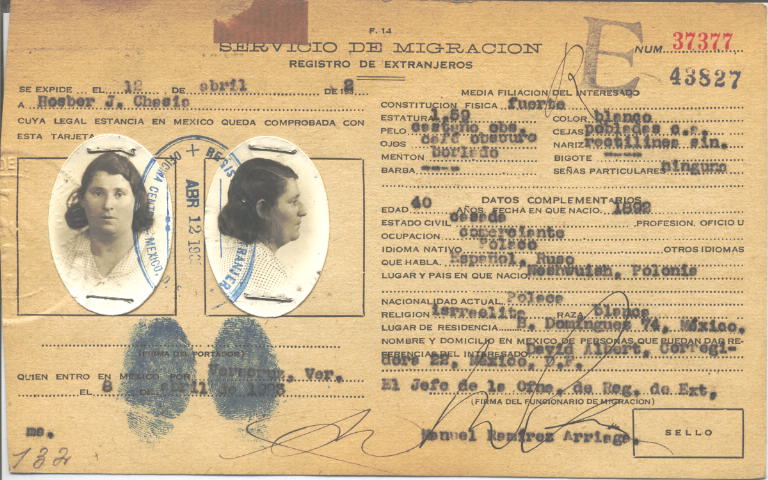 F. 14
SERVICIO DE MIGRACION
REGISTRO DE EXTRANJEROS
E
NUM. 37377
43827
SE EXPIDE EL 12 DE abril DE 19
A Rosber J. Chesis
CUYA LEGAL ESTANCIA EN MEXICO QUEDA COMPROBADA CON
ESTA TARJETA
ABR 12 19
MEXICO, D.
(FIRMA DEL PORTADOR)
QUIEN ENTRO EN MEXICO POR Veracruz, Ver.
EL 8 DE abril de
ms.
132
MEDIA FILIACION DEL INTERESADO
CONSTITUCION FISICA fuerte
ESTATURA 1.59 COLOR blanco
PELO castaño obs. CEJAS pobladas c.s.
OJOS café obscuro NARIZ rectilinea sin.
MENTON BIGOTE ----
BARBA ---- SEÑAS PARTICULARES ninguna
DATOS COMPLEMENTARIOS
EDAD 40 AÑOS. FECHA EN QUE NACIO 1892
ESTADO CIVIL casada PROFESION, OFICIO U
OCUPACION comerciante
IDIOMA NATIVO Polaco OTROS IDIOMAS
QUE HABLA. Español, Ruso
LUGAR Y PAIS EN QUE NACIO Polonia
NACIONALIDAD ACTUAL Polaca
RELIGION israelita RAZA blanca
LUGAR DE RESIDENCIA B. Dominguez 74, México.
NOMBRE Y DOMICILIO EN MEXICO DE PERSONAS QUE PUEDAN DAR RE-
FERENCIAS DEL INTERESADO David Albert, Corregi-
dora 22, México, D.F.
El Jefe de la Ofna. de Reg. de Ext,
(FIRMA DEL FUNCIONARIO DE MIGRACION)
Manuel Ramírez Arriaga.
SELLO